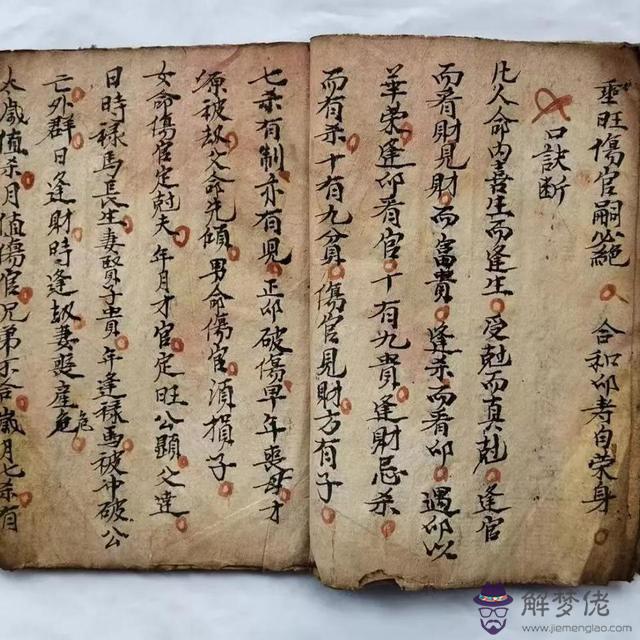 重旺傷官嗣必絕 合和印者自荣身
口訣断
凡人命内喜生而逢生受尅而真尅逢官
而看財見財而富貴逢杀而看印遇印以
華荣逢印看官十有九貴逢財忌杀
而有杀十有九貧傷官見財方有子
七杀有制亦有児正印破傷早年丧母才
源被劫父命先傾男命傷官須損子
女命傷官定尅夫年月才官定旺公顕父達
日時禄馬長生妻賢子貴年逢禄馬被冲破公
亡外群日逢財時逢劫妻丧産危
危
太歲值杀月值傷官兄弟不合歲月七杀有
解梦佬
www.jiemenglao.com